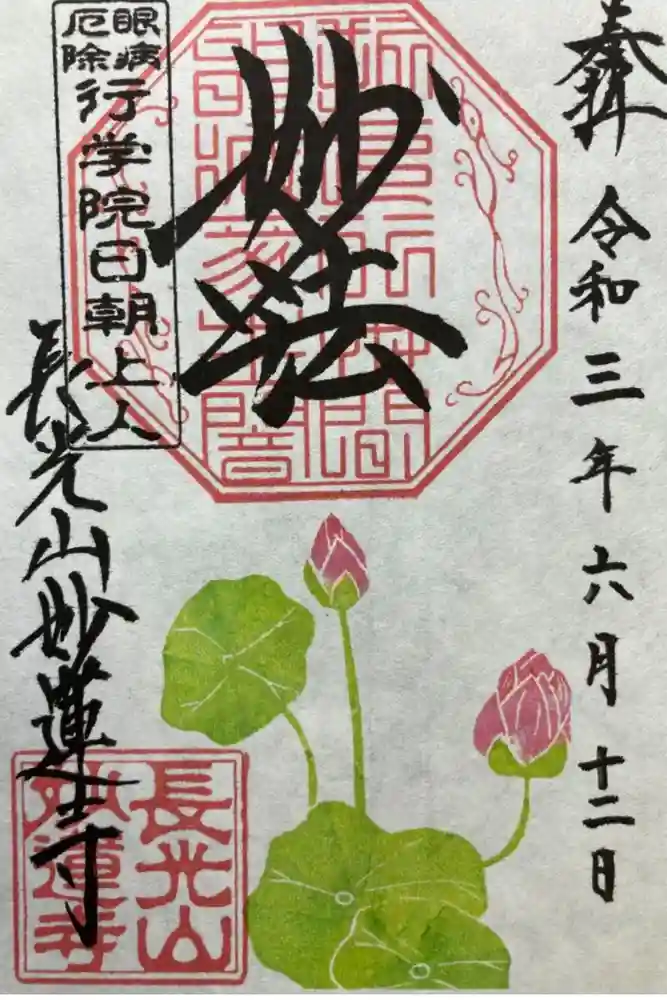 奉拝
令和三年六月十二日
妙法
眼病
厄除
行学院日朝上人
長光山妙蓮寺
長光山
妙蓮寺